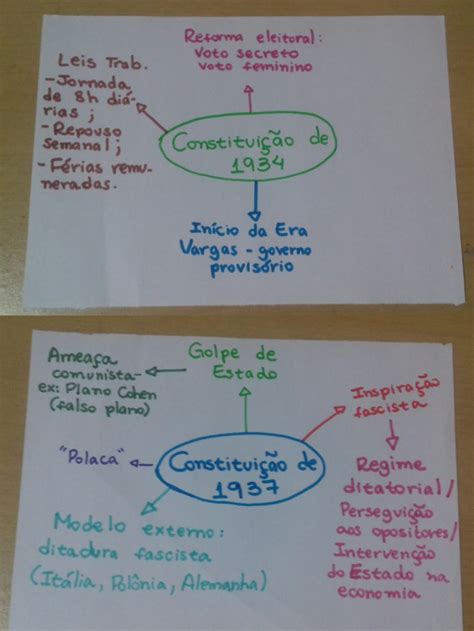 Reforma eleitoral:
Voto secreto
voto feminino
Leis Trab.
- Jornada
de 8h diá-
rias ;
- Repouso
semanal;
- Férias remu-
neradas.
Constituição de
1934
Início da Era
Vargas - governo
provisório
Golpe de
Estado
Ameaça
comunista-
ex: Plano Cohen
(falso plano)
Inspiração
fascista
"Polaca"
Constituição de
1937
Regime
ditatorial/
Perseguição
aos opositores/
Intervenção
do Estado na
economia
Modelo externo:
ditadura fascista
(Itália, Polônia, Alemanha)